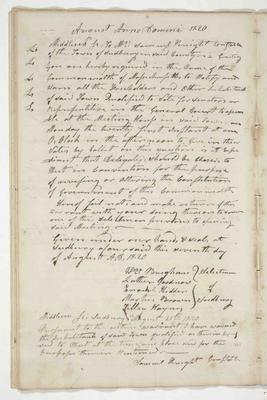 August Anno Domini 1820
Middlesex Ss. To Mr. Samuel Knight Constable
of the Town of Sudbury in said County Greeting
You are hereby required in the Name of the
Commonwealth of Massachusetts to Notify and
warn all the Freeholders and Other Inhabitants
of said Town Qualified to Vote for Senators or
Representatives, in the General Court to assem
ble at the Meeting House in said Town, on
Monday the twenty first instant at one
O Clock in the afternoon to give in their
Votes by ballot on this question is it expe
dient that Delegates should be chosen to
meet in Convention for the purpose
of revising or altering the Constitution
of Government of this Commonwealth
Hereof fail not and make return of this
warrant with your doing thereon to some
one of the Selectmen previous to opening
said Meeting
Given under our hands & seals at
Sudbury aforesaid this seventh day
of August A.D. 1820
Selectmen
Luther Goodnow
of
Brown
Sudbury
Haynes
Middlesex Ss. Sudbury August 21st 1820
Pursuant to the within warrant I have warned
the Inhabitants of said Town qualified as therein
to Meet at the time and place and for the
purpose therein Mentioned
Samuel Knight Constable